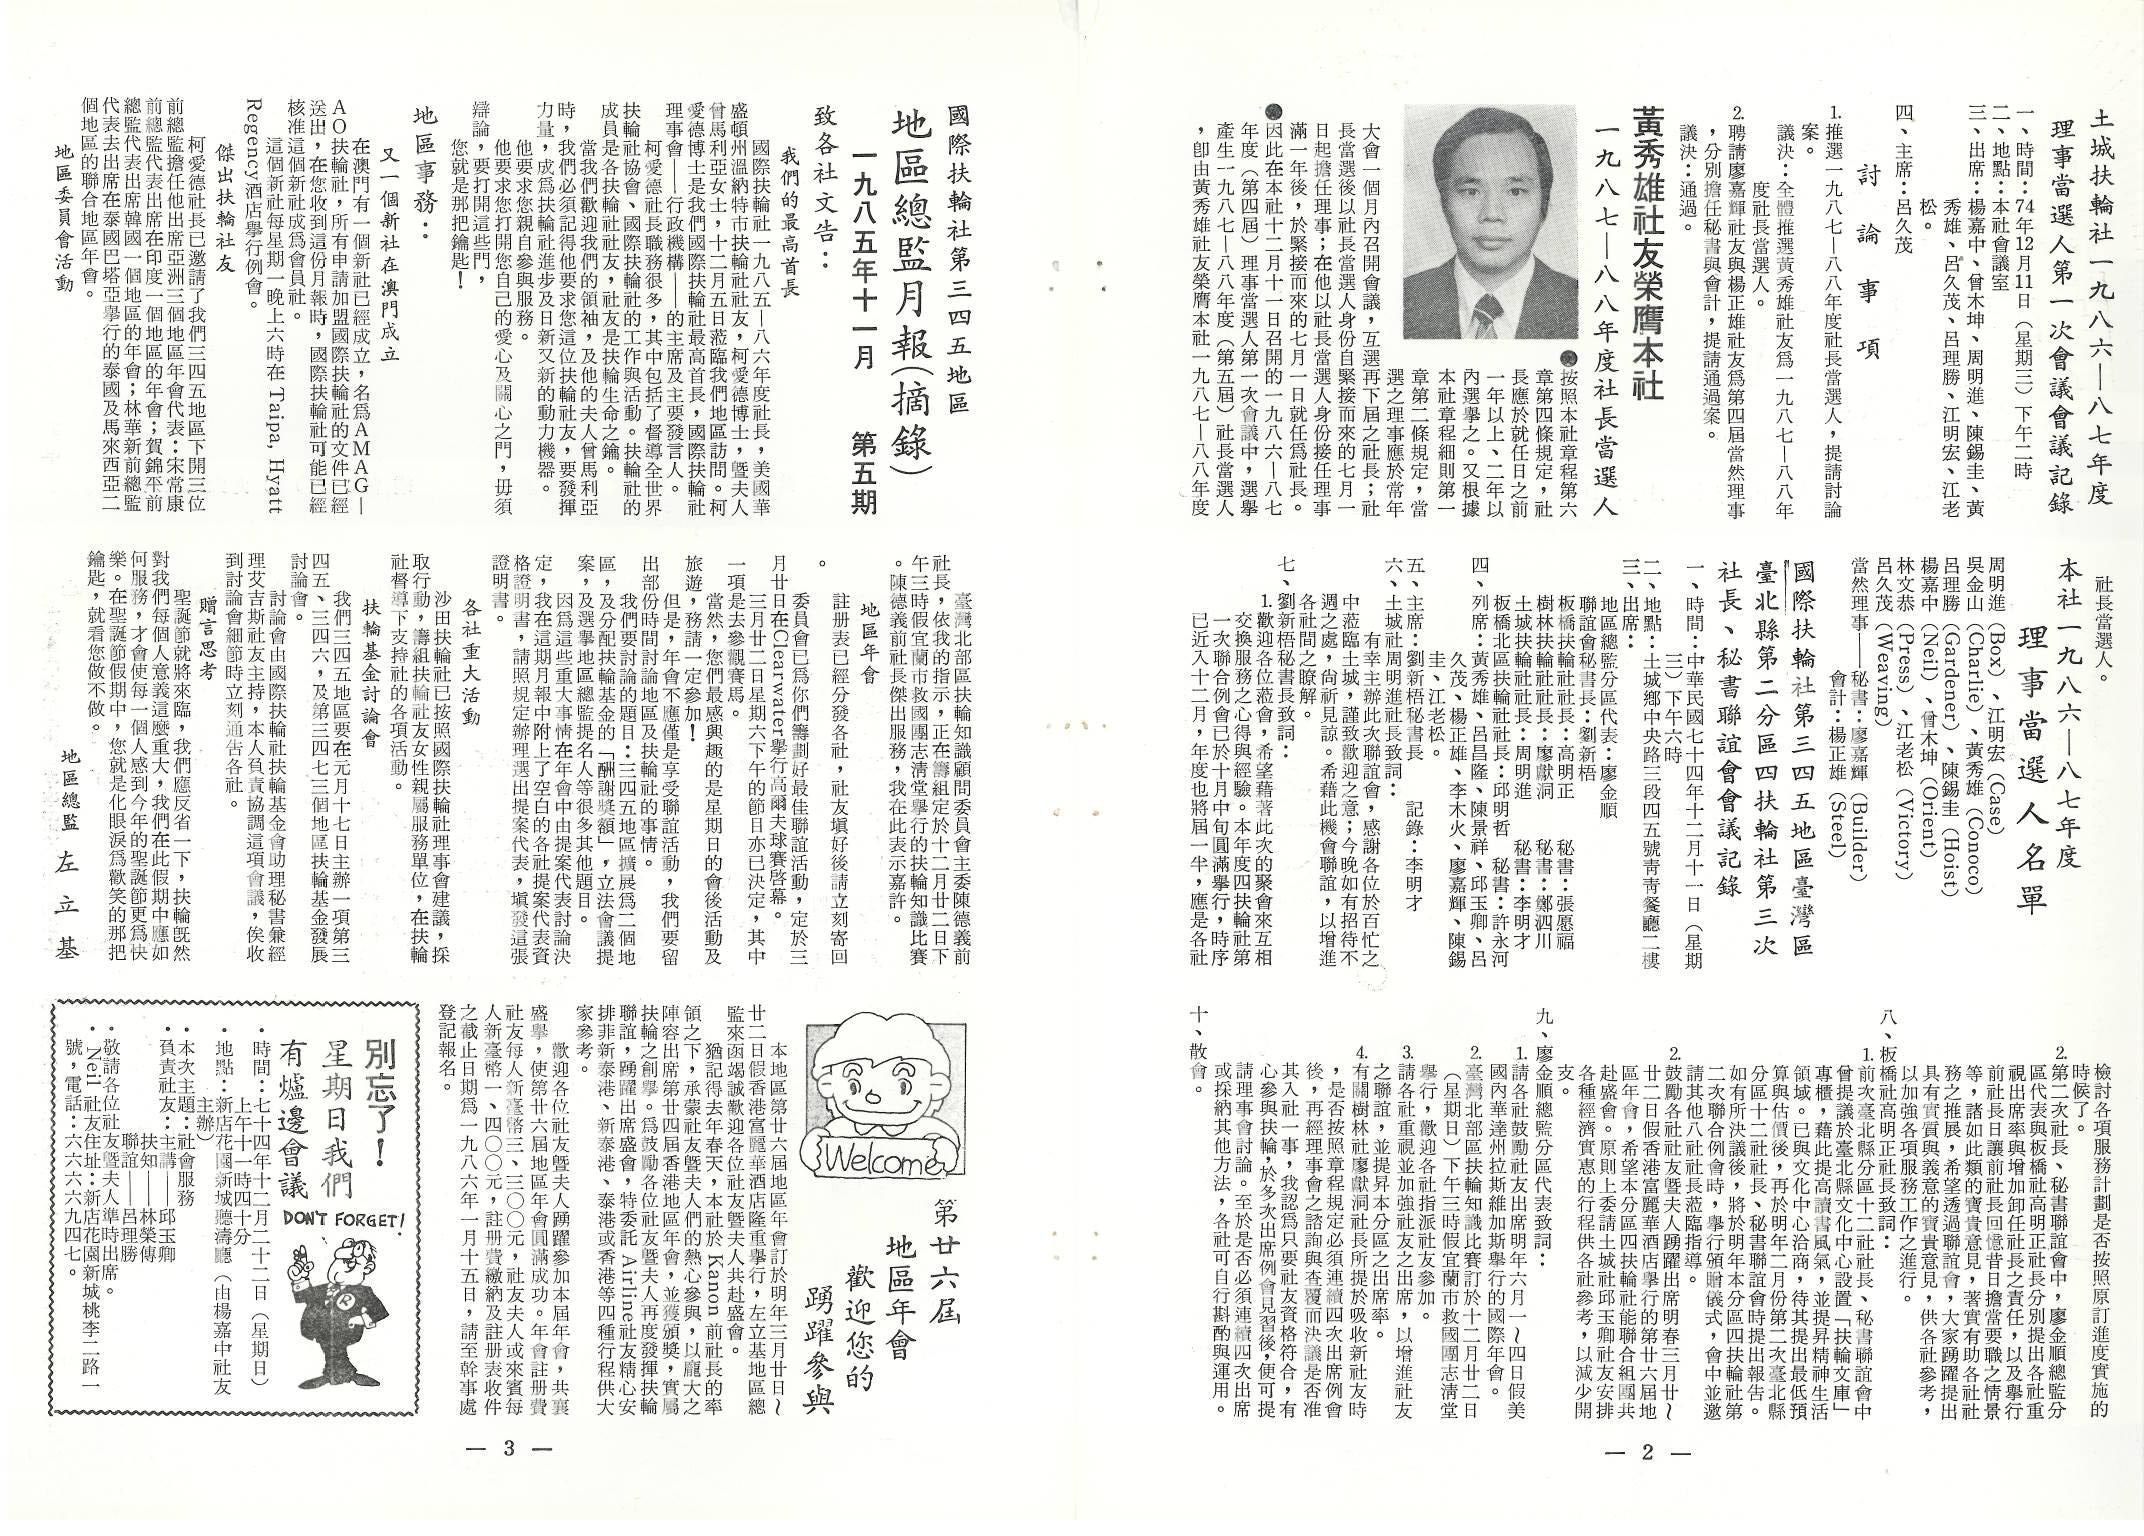 土城扶輪社一九八六—八七年度
理事當選人第一次會議會議記錄
一、時間：74年12月11日（星期三）下午二時
二、地點：本社會議室
三、出席：楊嘉中、曾木坤、周明進、陳錫圭、黃
秀雄、呂久茂、呂理勝、江明宏、江老
松。
四、主席：呂久茂
討論事項
1.推選一九八七—八八年度社長當選人，提請討論
案。
議決：全體推選黃秀雄社友爲一九八七—八八年
度社長當選人。
2.聘請廖嘉輝社友與楊正雄社友爲第四屆當然理事
，分別擔任秘書與會計，提請通過案。
議決：通過。
黃秀雄社友榮膺本社
一九八七—八八年度社長當選人
●按照本社章程第六
章第四條規定，社
長應於就任日之前
一年以上、二年以
內選擧之。又根據
本社章程細則第一
章第二條規定，當
選之理事應於常年
大會一個月內召開會議，互選再下屆之社長；社
長當選後以社長當選人身份自緊接而來的七月一
日起擔任理事；在他以社長當選人身份接任理事
滿一年後，於緊接而來的七月一日就任爲社長。
●因此在本社十二月十一日召開的一九八六—八七
年度（第四屆）理事當選人第一次會議中，選擧
產生一九八七—八八年度（第五屆）社長當選人
，卽由黃秀雄社友榮膺本社一九八七—八八年度
社長當選人。
本社一九八六—八七年度
理事當選人名單
周明進（Box）、江明宏（Case）
吳金山（Charlie）、黃秀雄（Conoco）
呂理勝（Gardener）、陳錫圭（Hoist）
楊嘉中（Neil）、曾木坤（Orient）
林文恭（Press）、江老松（Victory）
呂久茂（Weaving）
當然理事——秘書：廖嘉輝（Builder）
會計：楊正雄（Steel）
國際扶輪社第三四五地區臺灣區
臺北縣第二分區四扶輪社第三次
社長、秘書聯誼會會議記錄
一、時間：中華民國七十四年十二月十一日（星期
三）下午六時
二、地點：土城鄉中央路三段四五號靑靑餐廳二樓
三、出席：
地區總監分區代表：廖金順
聯誼會秘書長：劉新梧
板橋扶輪社社長：高明正　秘書：張愿福
樹林扶輪社社長：廖獻洞　秘書：鄭泗川
土城扶輪社社長：周明進　秘書：李明才
板橋北區扶輪社社長：邱明哲　秘書：許永河
四、列席：黃秀雄、呂昌隆、陳景祥、邱玉卿、呂
久茂、楊正雄、李木火、廖嘉輝、陳錫
圭、江老松。
五、主席：劉新梧秘書長　記錄：李明才
六、土城社周明進社長致詞：
有幸主辦此次聯誼會，感謝各位於百忙之
中蒞臨土城，謹致歡迎之意；今晚如有招待不
週之處，尙祈見諒。希藉此機會聯誼，以增進
各社間之瞭解。
七、劉新梧秘書長致詞：
1.歡迎各位蒞會，希望藉著此次的聚會來互相
交換服務之心得與經驗。本年度四扶輪社第
一次聯合例會已於十月中旬圓滿擧行，時序
已近入十二月，年度也將屆一半，應是各社
檢討各項服務計劃是否按照原訂進度實施的
時候了。
2.第二次社長、秘書聯誼會中，廖金順總監分
區代表與板橋社高明正社長分別提出各社重
視出席率與增加卸任社長之責任，以及擧行
前社長日讓前社長回憶昔日擔當要職之情景
等，諸如此類的寶貴意見，著實有助各社社
務之推展，希望透過聯誼會，大家踴躍提出
具有實質與義意的寶貴意見，供各社參考，
以加強各項服務工作之進行。
八、板橋社高明正社長致詞：
1.前次臺北縣分區十二社社長、秘書聯誼會中
曾提議於臺北縣文化中心設置「扶輪文庫」
專櫃，藉此提高讀書風氣，並提昇精神生活
領域。已與文化中心洽商，待其提出最低預
算與估價後，再於明年二月份第二次臺北縣
分區十二社社長、秘書聯誼會時提出報告。
如有所決議後，將於明年本分區四扶輪社第
二次聯合例會時，擧行頒贈儀式，會中並邀
請其他八社社長蒞臨指導。
2.鼓勵各社社友曁夫人踴躍出席明春三月廿～
廿二日假香港富麗華酒店擧行的第廿六屆地
區年會，希望本分區四扶輪社能聯合組團共
赴盛會。原則上委請土城社邱玉卿社友安排
各種經濟實惠的行程供各社參考，以減少開
支。
九、廖金順總監分區代表致詞：
1.請各社鼓勵社友出席明年六月一～四日假美
國內華達州拉斯維加斯擧行的國際年會。
2.臺灣北部區扶輪知識比賽訂於十二月廿二日
（星期日）下午三時假宜蘭市救國團志淸堂
擧行，歡迎各社指派社友參加。
3.請各社重視並加強社友之出席，以增進社友
之聯誼，並提昇本分區之出席率。
4.有關樹林社廖獻洞社長所提於吸收新社友時
，是否按照章程規定必須連續四次出席例會
後，再經理事會之諮詢與查覆而決議是否准
其入社一事，我認爲只要社友資格符合，有
心參與扶輪，於多次出席例會見習後，便可提
請理事會討論。至於是否必須連續四次出席
或採納其他方法，各社可自行斟酌與運用。
十、散會。
— 2 —
國際扶輪社第三四五地區
地區總監月報（摘錄）
一九八五年十一月　第五期
致各社文告：
我們的最高首長
國際扶輪社一九八五—八六年度社長，美國華
盛頓州溫納特市扶輪社社友，柯愛德博士，曁夫人
曾馬利亞女士，十二月五日蒞臨我們地區訪問。柯
愛德博士是我們國際扶輪社最高首長，國際扶輪社
理事會——行政機構——的主席及主要發言人。
柯愛德社長職務很多，其中包括了督導全世界
扶輪社協會、國際扶輪社的工作與活動。扶輪社的
成員是各扶輪社社友，社友是扶輪生命之鑰。
當我們歡迎我們的領袖，及他的夫人曾馬利亞
時，我們必須記得他要求您這位扶輪社友，要發揮
力量，成爲扶輪社進步及日新又新的動力機器。
他要求您親自參與服務。
他要求您打開您自己的愛心及關心之門，毋須
辯論，要打開這些門，
您就是那把鑰匙！
地區事務：
又一個新社在澳門成立
在澳門有一個新社已經成立，名爲AMAG—
AO扶輪社，所有申請加盟國際扶輪社的文件已經
送出，在您收到這份月報時，國際扶輪社可能已經
核准這個新社成爲會員社。
這個新社每星期一晚上六時在 Taipa, Hyatt
Regency酒店擧行例會。
傑出扶輪社友
柯愛德社長已邀請了我們三四五地區下開三位
前總監擔任他出席亞洲三個地區年會代表：宋常康
前總監代表出席在印度一個地區的年會；賀錦平前
總監代表出席韓國一個地區的年會；林華新前總監
代表去出席在泰國巴塔亞擧行的泰國及馬來西亞二
個地區的聯合地區年會。
地區委員會活動
臺灣北部區扶輪知識顧問委員會主委陳德義前
社長，依我的指示，正在籌組定於十二月廿二日下
午三時假宜蘭市救國團志淸堂擧行的扶輪知識比賽
。陳德義前社長傑出服務，我在此表示嘉許。
地區年會
註册表已經分發各社，社友塡好後請立刻寄回
。
委員會已爲你們籌劃好最佳聯誼活動，定於三
月廿日在Clearwater擧行高爾夫球賽啓幕。
三月廿二日星期六下午的節目亦已決定，其中
一項是去參觀賽馬。
當然，您們最感興趣的是星期日的會後活動及
旅遊，務請一定參加！
但是，年會不應僅是享受聯誼活動，我們要留
出部份時間討論地區及扶輪社的事情。
我們要討論的題目：三四五地區擴展爲二個地
區，及分配扶輪基金的「酬謝獎額」，立法會議提
案，及選擧地區總監提名人等很多其他題目。
因爲這些重大事情在年會中由提案代表討論決
定，我在這期月報中附上了空白的各社提案代表資
格證明書，請照規定辦理選出提案代表，塡發這張
證明書。
各社重大活動
沙田扶輪社已按照國際扶輪社理事會建議，採
取行動，籌組扶輪社友女性親屬服務單位，在扶輪
社督導下支持社的各項活動。
扶輪基金討論會
我們三四五地區要在元月十七日主辦一項第三
四五、三四六，及第三四七三個地區扶輪基金發展
討論會。
討論會由國際扶輪社扶輪基金會助理秘書兼經
理艾吉斯社友主持，本人負責協調這項會議，俟收
到討論會細節時立刻通告各社。
贈言思考
聖誕節就將來臨，我們應反省一下，扶輪旣然
對我們每個人意義這麼重大，我們在此假期中應如
何服務，才會使每一個人感到今年的聖誕節更爲快
樂。在聖誕節假期中，您就是化眼淚爲歡笑的那把
鑰匙，就看您做不做。
地區總監　左立基
Welcome
第廿六屆
地區年會
歡迎您的
踴躍參與
本地區第廿六屆地區年會訂於明年三月廿日～
廿二日假香港富麗華酒店隆重擧行，左立基地區總
監來函竭誠歡迎各位社友曁夫人共赴盛會。
猶記得去年春天，本社於 Kanon 前社長的率
領之下，承蒙社友曁夫人們的熱心參與，以龐大之
陣容出席第廿四屆香港地區年會，並獲頒獎，實屬
扶輪之創擧。爲鼓勵各位社友曁夫人再度發揮扶輪
聯誼，踴躍出席盛會，特委託 Airline社友精心安
排菲新泰港、新泰港、泰港或香港等四種行程供大
家參考。
歡迎各位社友曁夫人踴躍參加本屆年會，共襄
盛擧，使第廿六屆地區年會圓滿成功。年會註册費
社友每人新臺幣三、三〇〇元，社友夫人或來賓每
人新臺幣一、四〇〇元，註册費繳納及註册表收件
之截止日期爲一九八六年一月十五日，請至幹事處
登記報名。
別忘了！
星期日我們
有爐邊會議
DON'T FORGET!
・時間：七十四年十二月二十二日（星期日）
上午十一時四十分
・地點：新店花園新城聽濤廳（由楊嘉中社友
主辦）
・本次主題：社會服務
・負責社友：主講——邱玉卿
扶知——林榮傳
聯誼——呂理勝
・敬請各位社友曁夫人準時出席。
・Neil 社友住址：新店花園新城桃李二路一
號，電話：六六六六九四七。
— 3 —